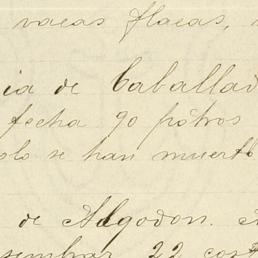 vacas flacas,
ia de Caballad
fecha 90 potros
olo se han muerto
de Algodon.
sembrar 22 cost